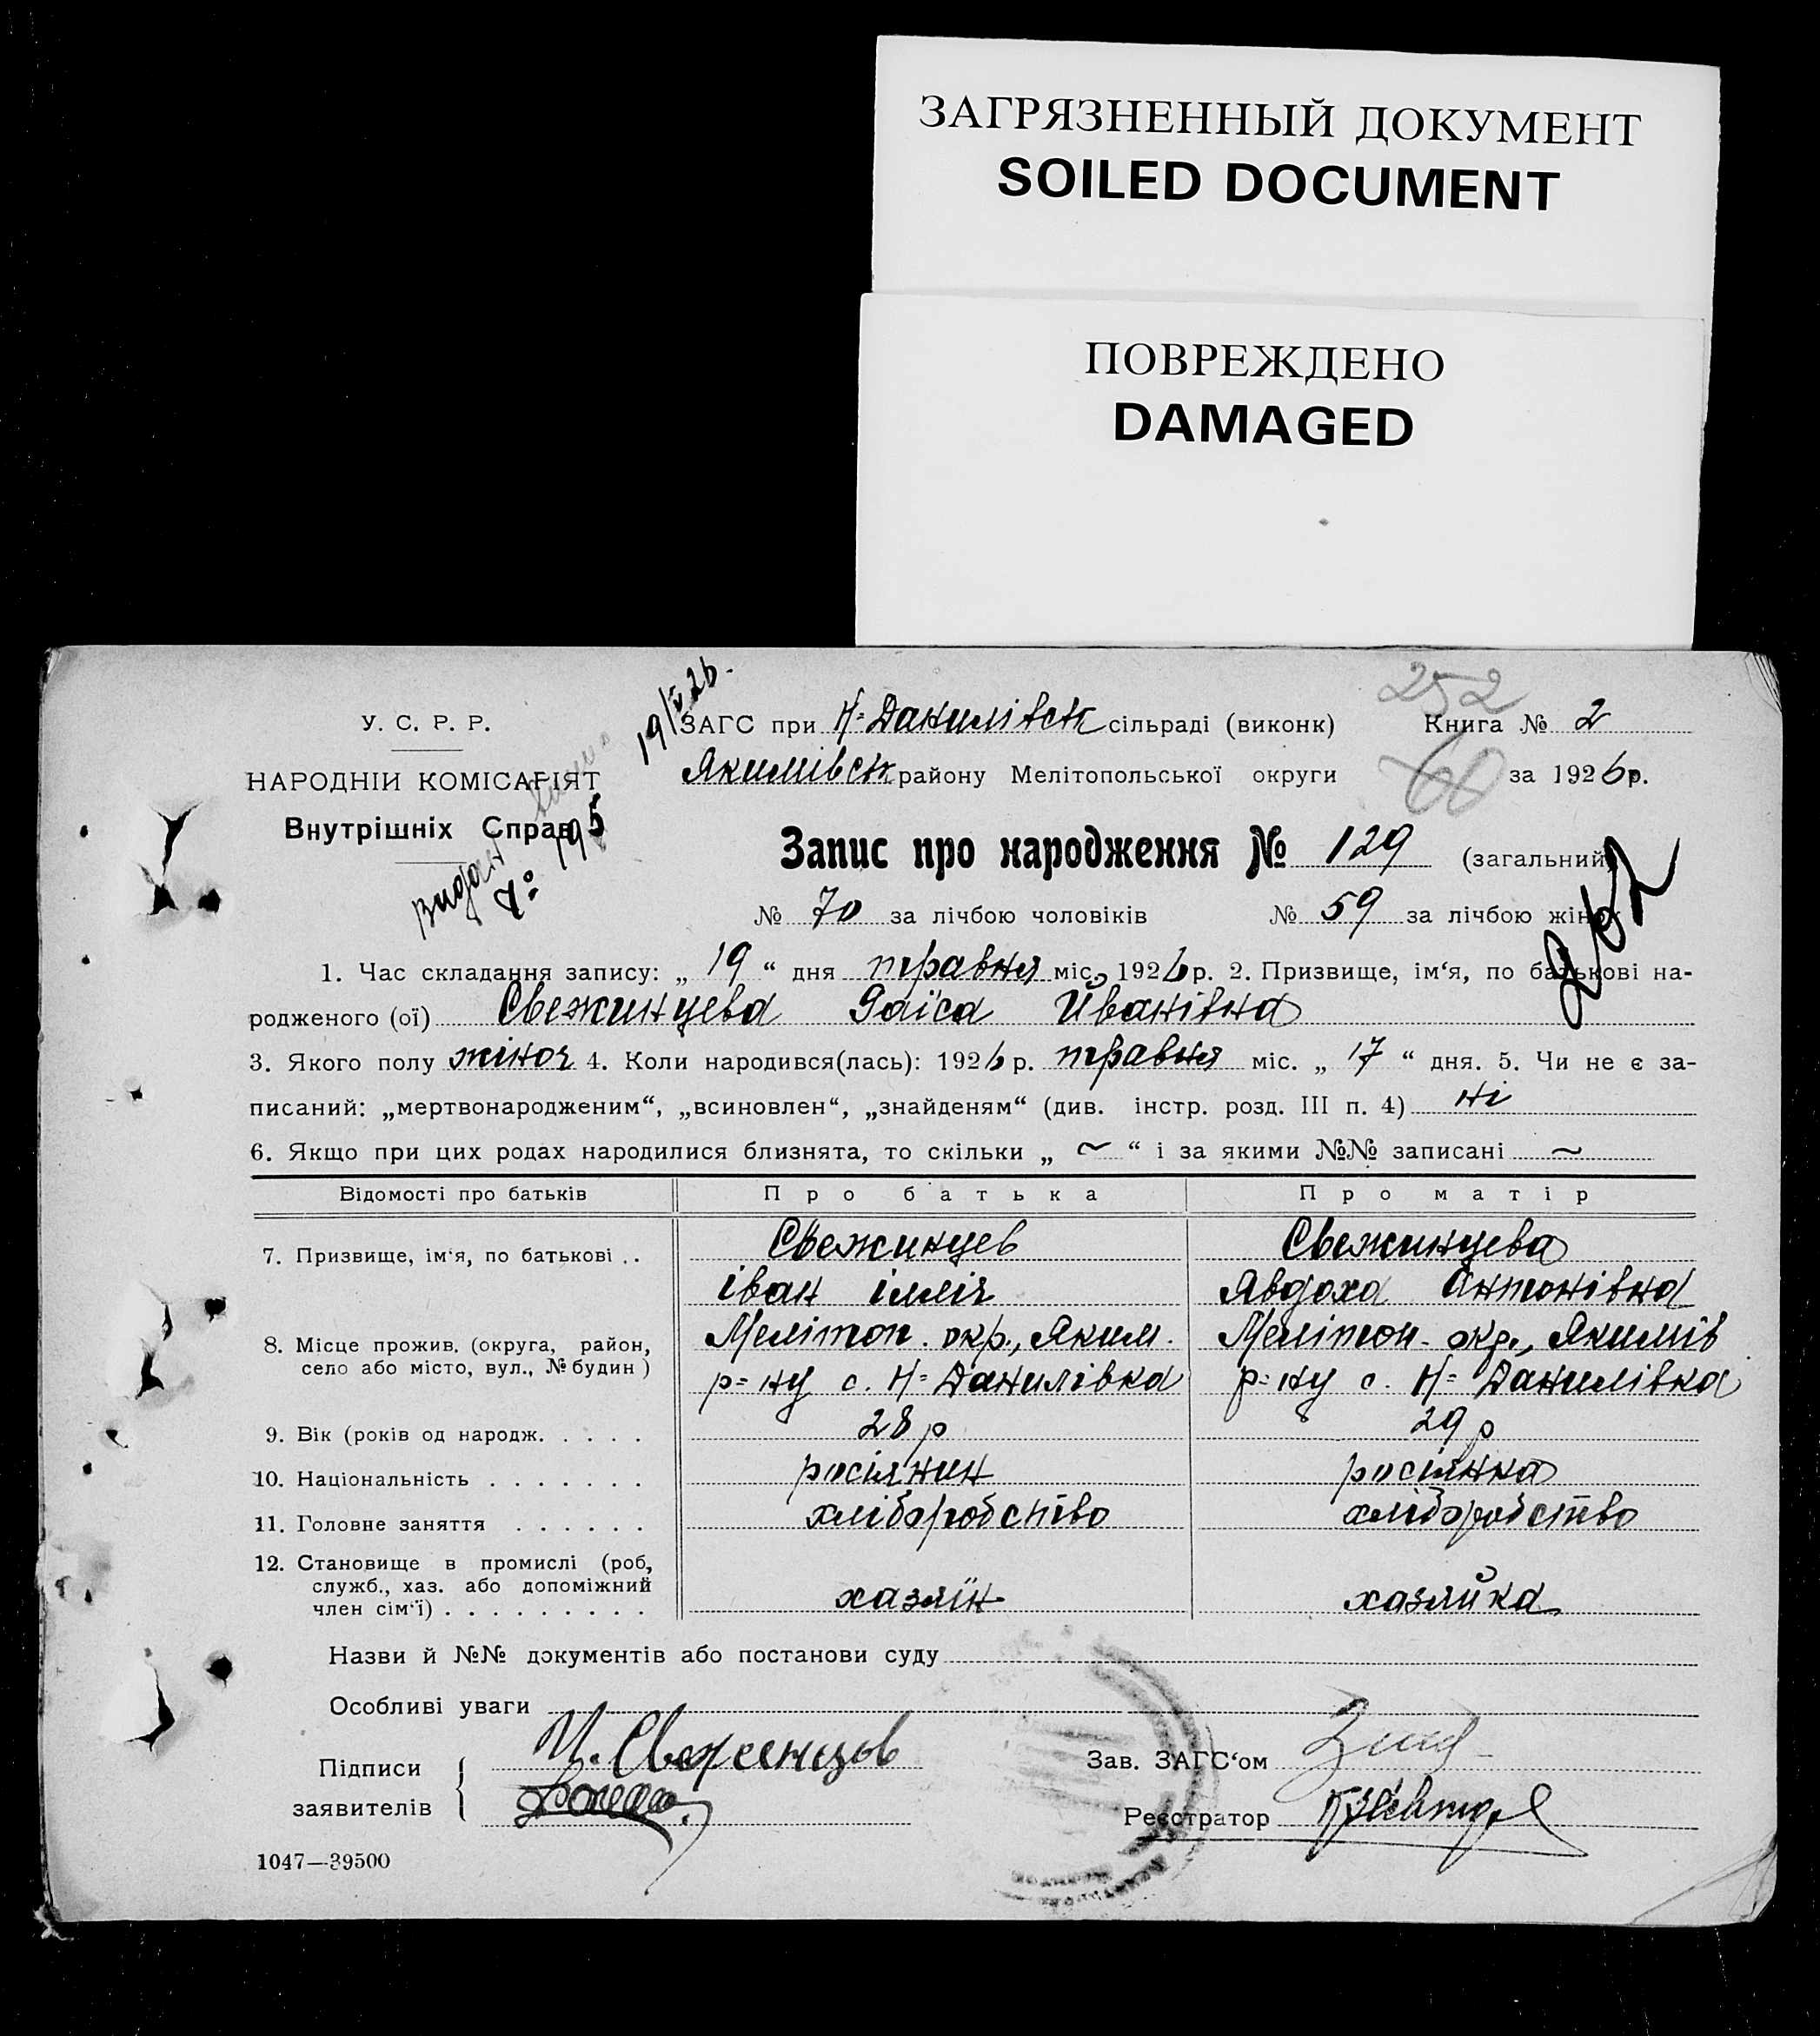 ЗАГРЯЗНЕННЫЙ ДОКУМЕНТ
SOILED DOCUMENT
ПОВРЕЖДЕНО
DAMAGED
252
У. С. Р. Р.
НАРОДНІЙ КОМІСАРІЯТ
Внутрішніх Справ
19/V 26.
ЗАГС при Н=Данилівськ сільраді (виконк) Книга № 2
Якимівськ району Мелітопольської округи 60 за 1926 р.
Запис про народження № 129 (загальний)
№ 70 за лічбою чоловіків № 59 за лічбою жінок
262
1. Час складання запису: „ 19 “ дня травня міс. 1926 р. 2. Призвище, ім‘я, по батькові на-
родженого (ої) Свежинцева Раїса Йванівна
3. Якого полу жіноч 4. Коли народився(лась): 1926 р. травня міс. „ 17 “ дня. 5. Чи не є за-
писаний: „мертвонародженим“, „всиновлен“, „знайденям“ (див. інстр. розд. III п. 4) ні
6. Якщо при цих родах народилися близнята, то скільки „ ~ “ і за якими №№ записані ~
Відомості про батьків Про батька Про матір
7. Призвище, ім‘я, по батькові . . Свежинцев Свежинцева
іван ілліч Явдоха Антонівна
8. Місце прожив. (округа, район, село або місто, вул., № будин ) Мелітоп. окр., Яким. Мелітоп. окр., Якимів
р=ну с. Н=Данилівка р=ну с. Н=Данилівка
9. Вік (років од народж. . . . . 28 р 29 р
10. Національність . . . . . . . росіянин росіянка
11. Головне заняття . . . . . . хліборобство хліборобство
12. Становище в промислі (роб, служб., хаз. або допоміжний член сім‘ї) . . . . . . . . . хазяїн хазяйка
Назви й №№ документів або постанови суду
Особливі уваги
Підписи заявителів И. Свеженцов
Зав. ЗАГС‘ом
Реєстратор
1047—39500